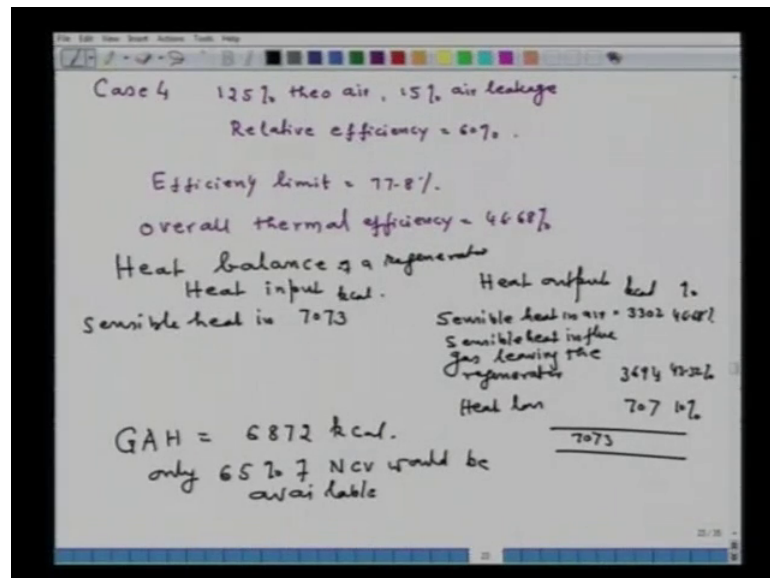 File Edit View Insert Actions Tools Help
Case 4 125% theo air, 15% air leakage
Relative efficiency = 60%.
Efficieny limit = 77.8%.
overall thermal efficiency = 46.68%
Heat balance of a regenerator
Heat input kcal.
Heat output kcal %
Sensible heat in 7073
Sensible heat in air = 3302 46.68%
Sensible heat in flue
gas leaving the
regenerator 3694 43.32%
Heat loss 707 10%
7073
GAH = 6872 kcal.
only 65% of NCV would be
available
23